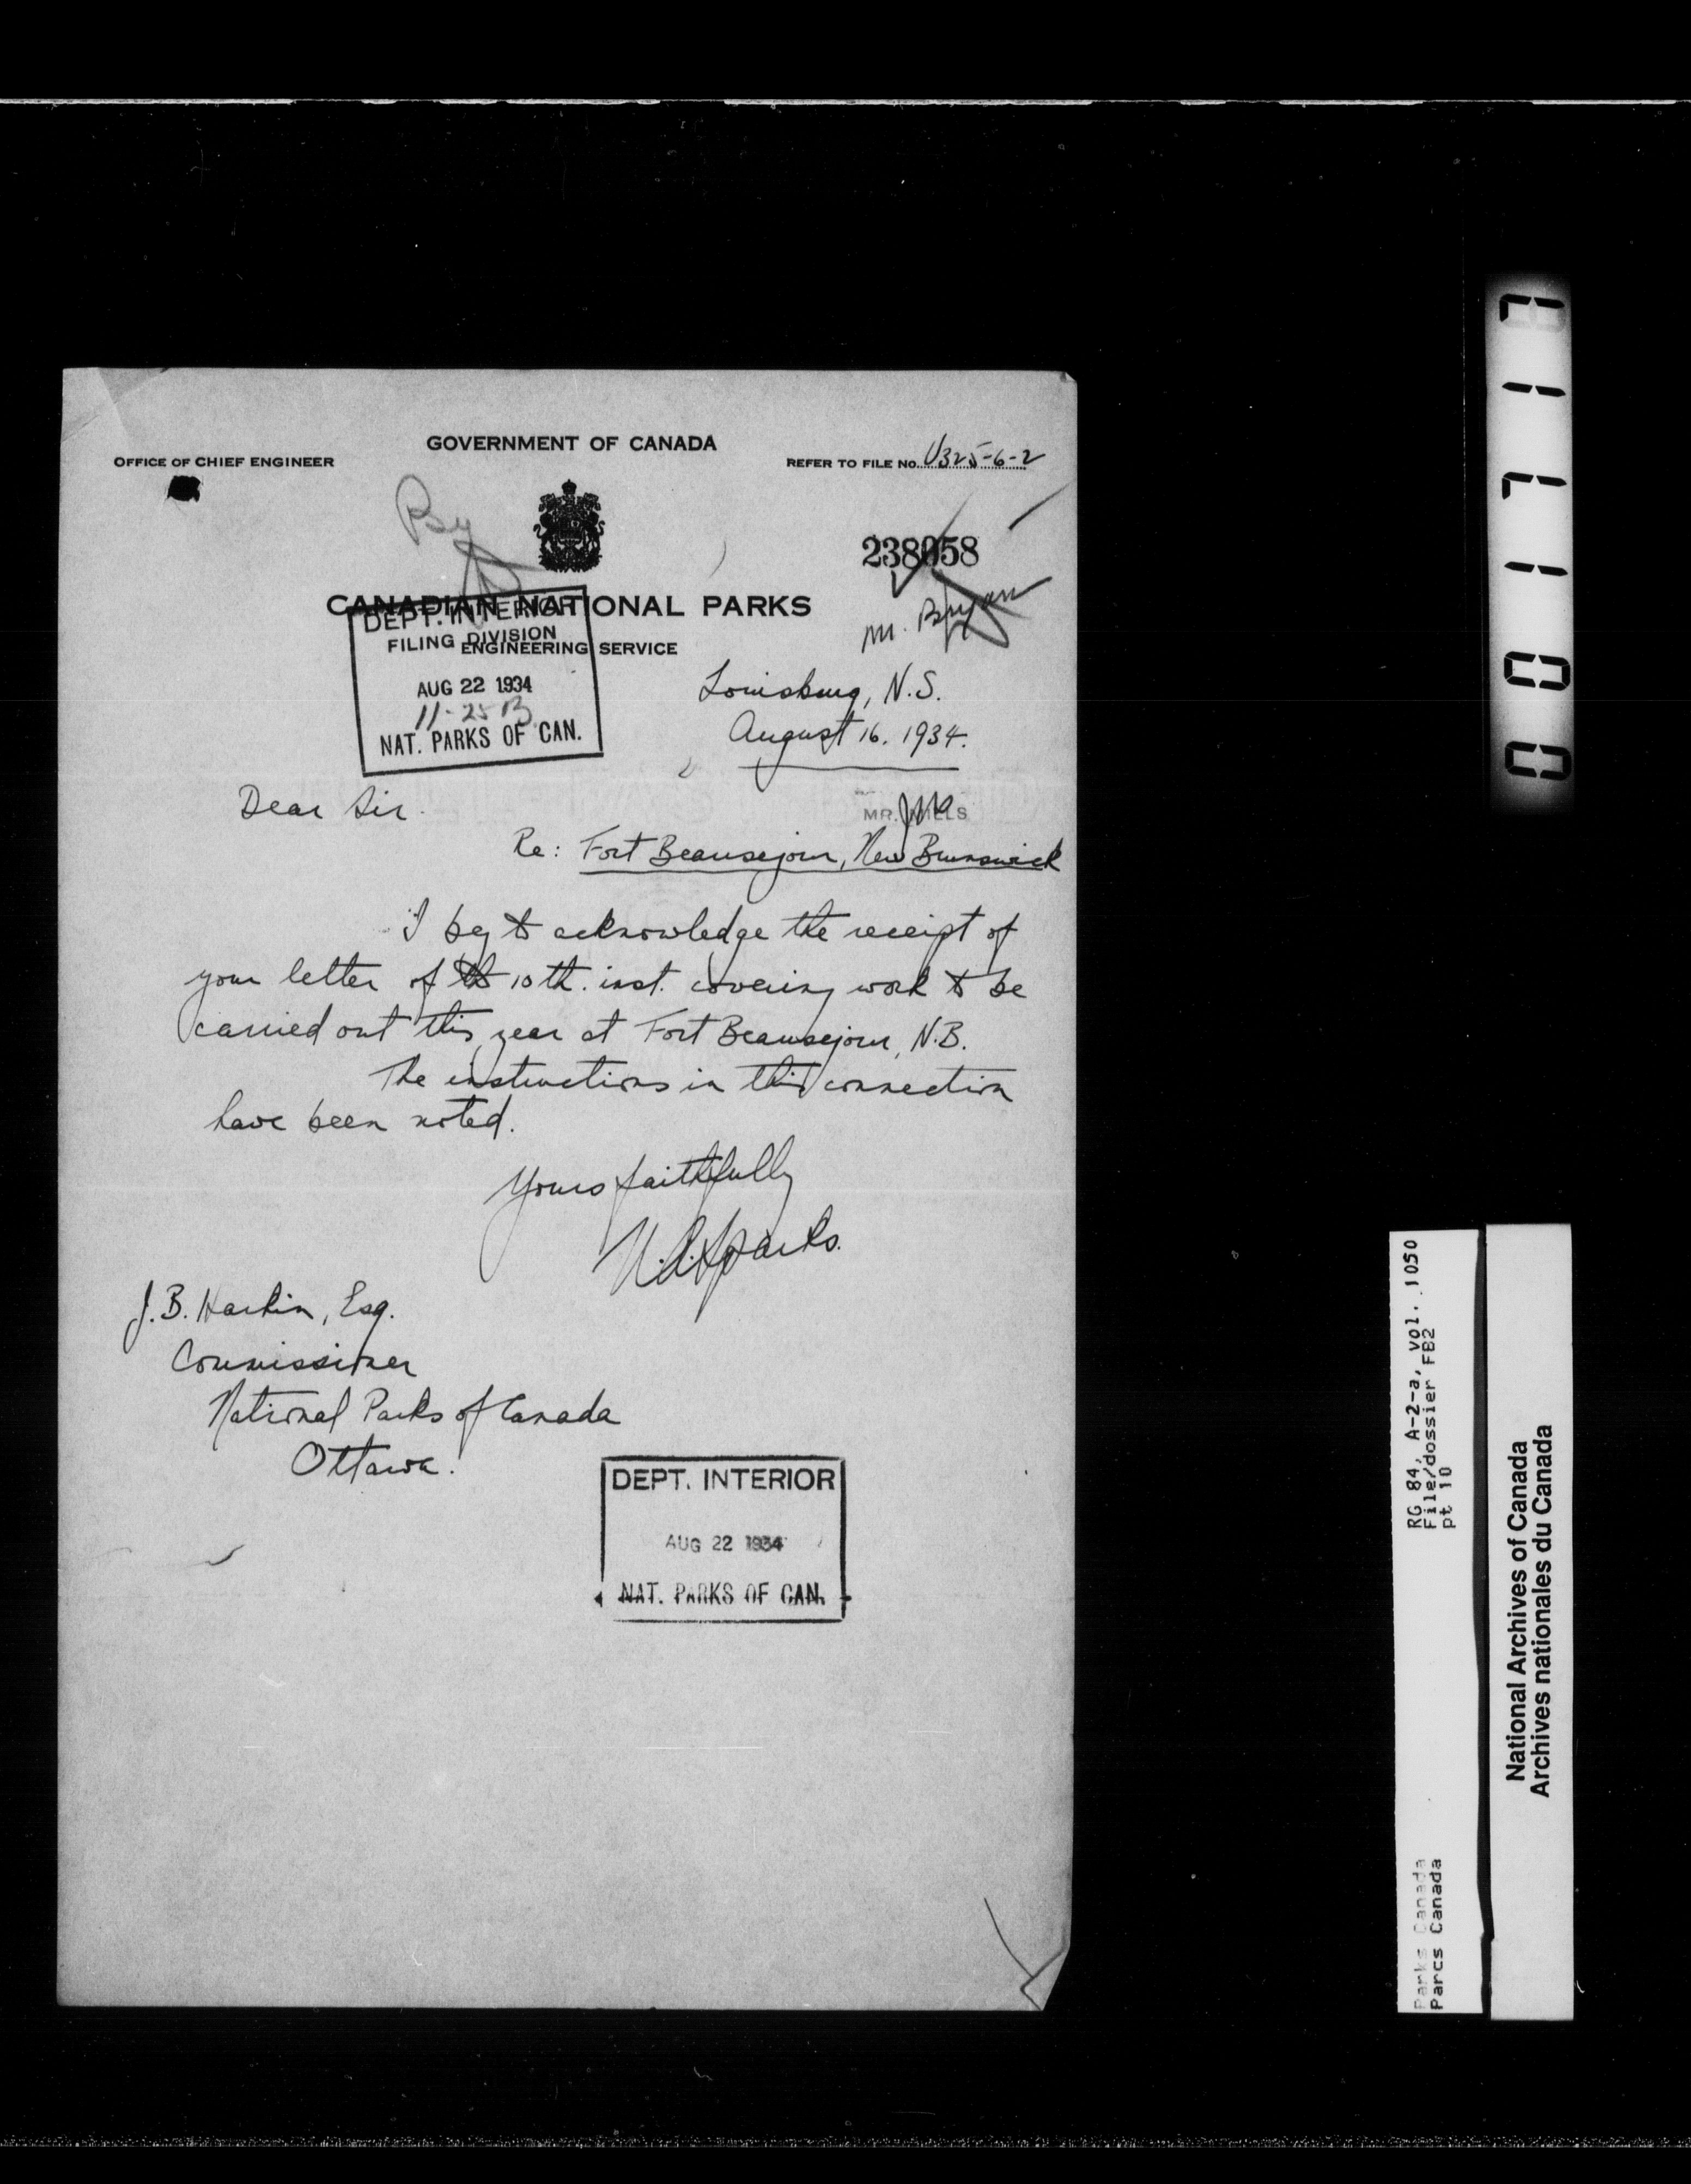 GOVERNMENT OF CANADA
OFFICE OF CHIEF ENGINEER
REFER TO FILE No. U325-6-2
238058
CANADIAN NATIONAL PARKS
ENGINEERING SERVICE
Mr. Bryan
DEPT. INTERIOR
FILING DIVISION
AUG 22 1934
11-25 B
NAT. PARKS OF CAN.
Louisburg, N.S.
August 16. 1934.
Dear Sir.
MR. MILLS
Re: Fort Beausejour, New Brunswick
I beg to acknowledge the receipt of
your letter of the 10th. inst. covering work to be
carried out this year at Fort Beausejour, N.B.
The instructions in this connection
have been noted.
Yours faithfully
Sparks.
J.B. Harkin, Esq.
Commissioner
National Parks of Canada
Ottawa.
DEPT. INTERIOR
AUG 22 1934
NAT. PARKS OF CAN.
001717
RG 84, A-2-a, vol. 1050
File/dossier FB2
pt 10
Parks Canada
Parcs Canada
National Archives of Canada
Archives nationales du Canada